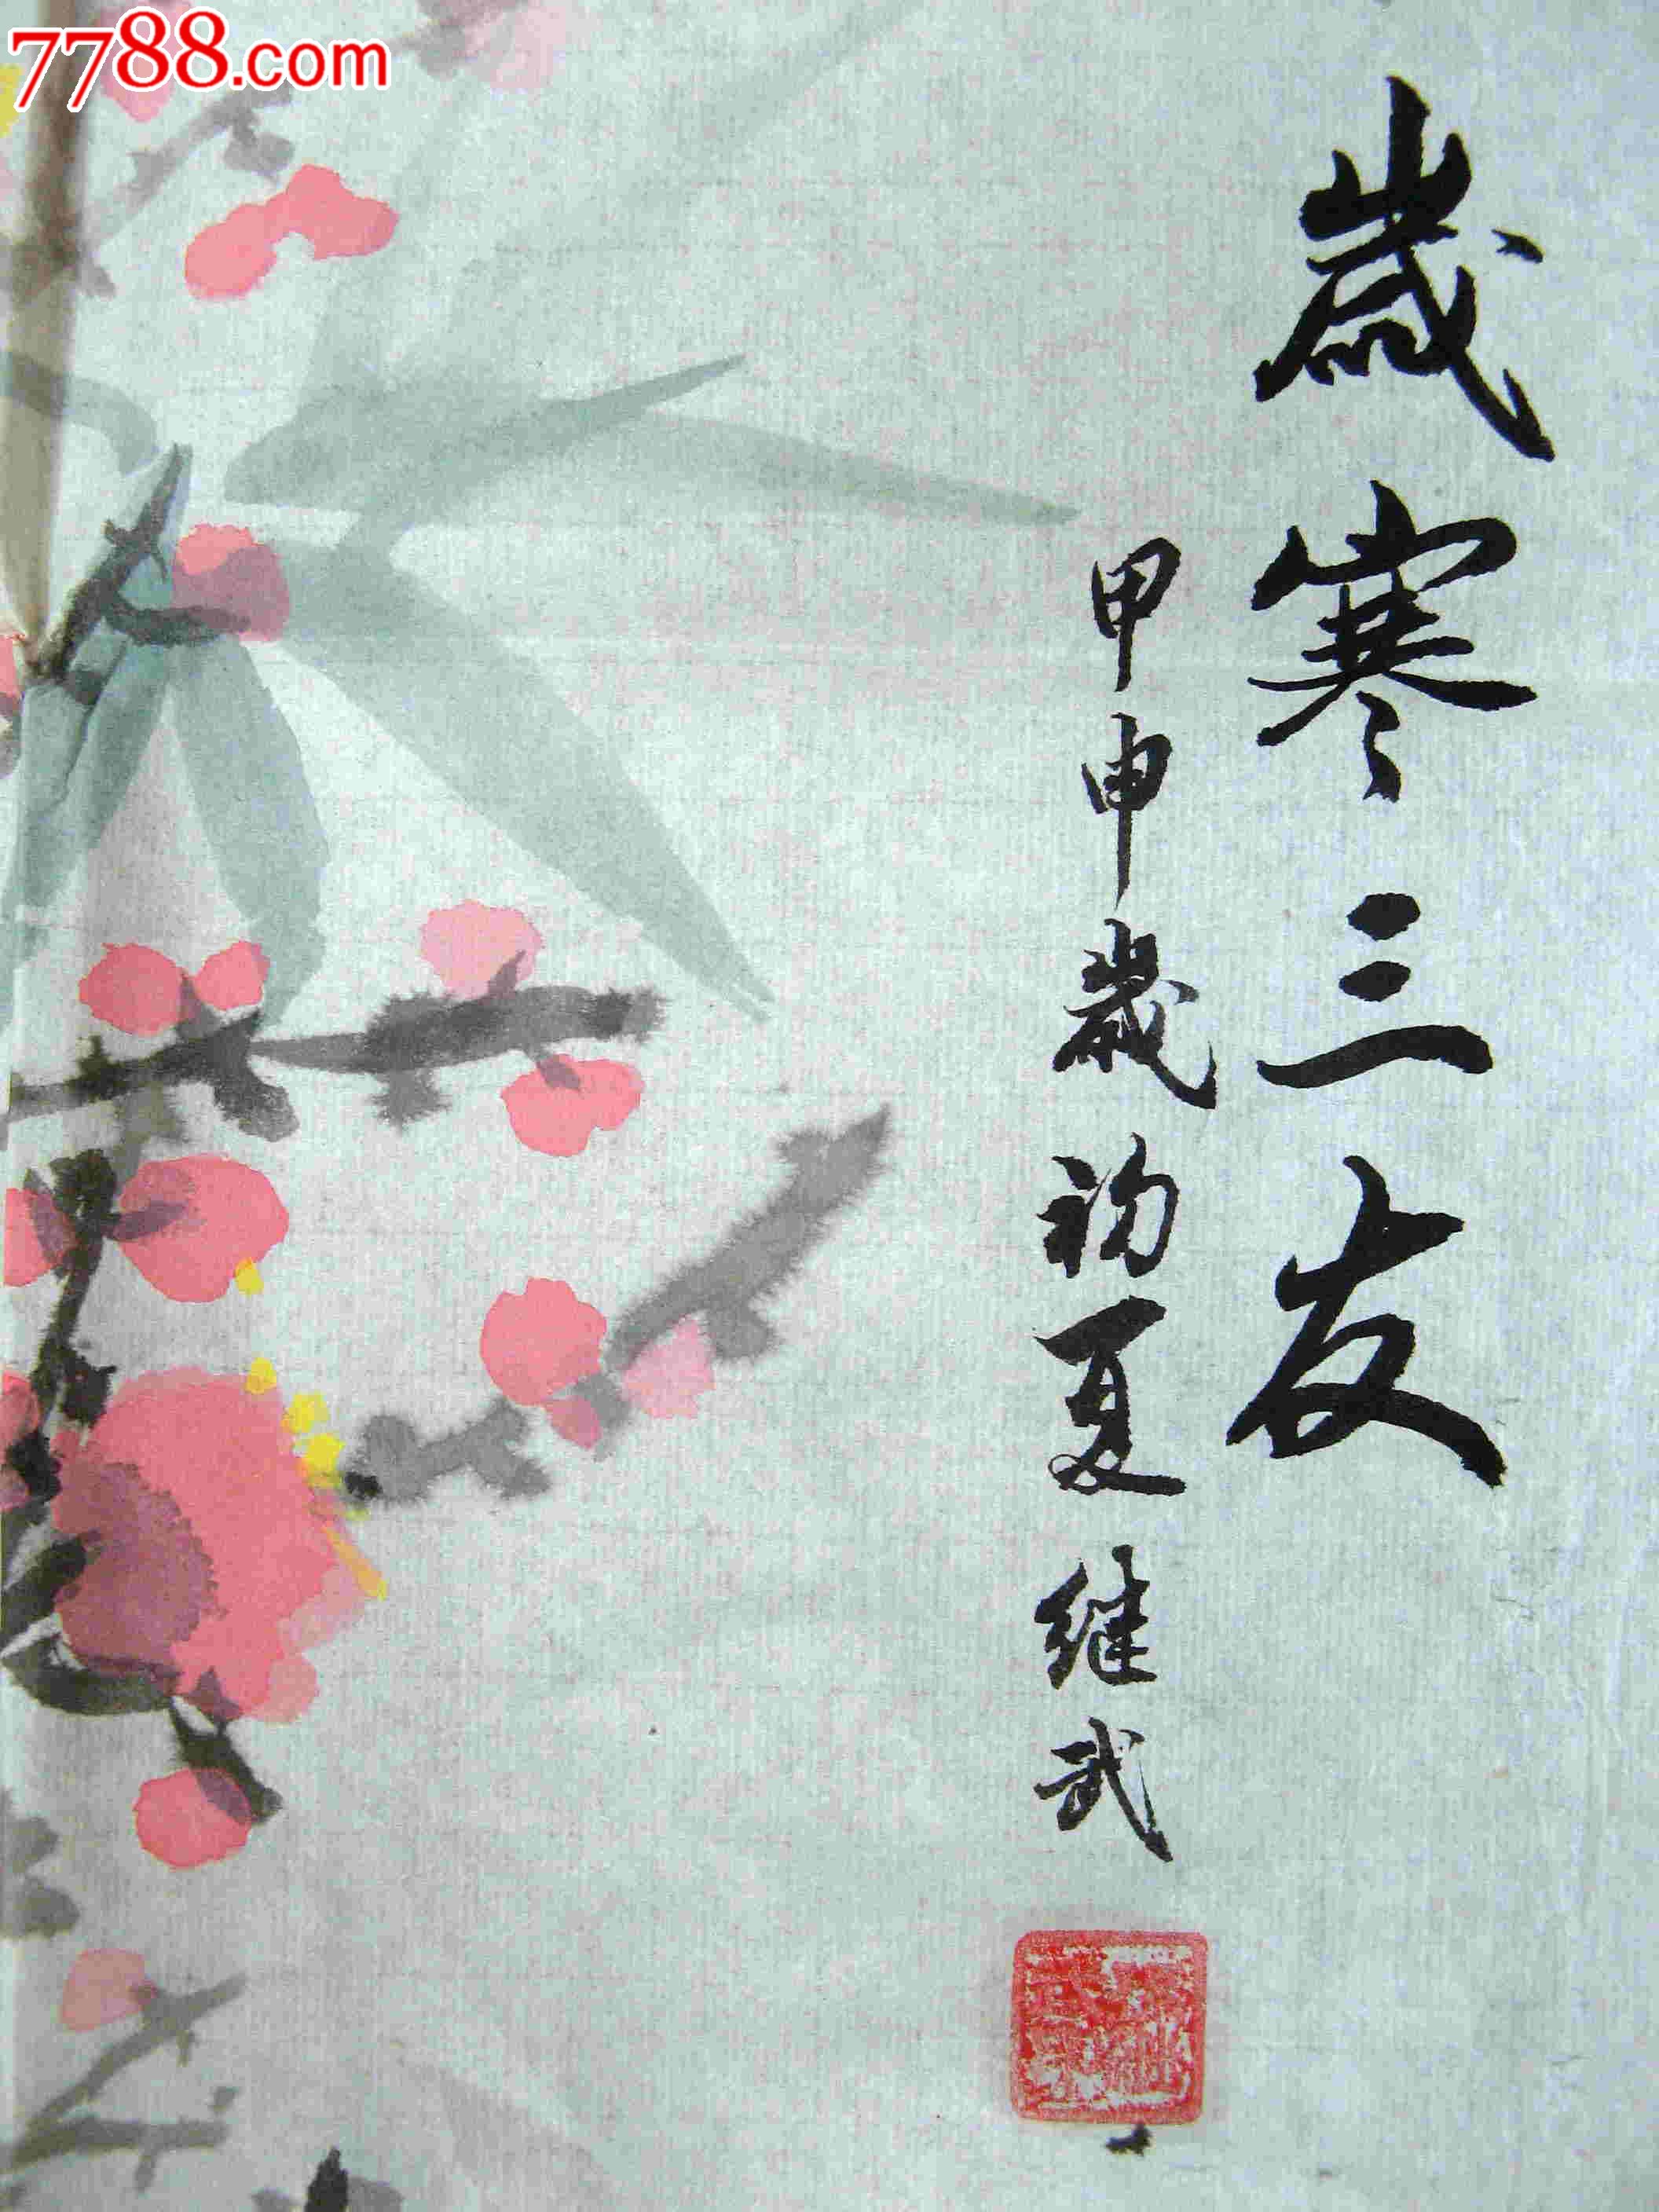 7788.com
歲寒三友
甲申歲初夏继武